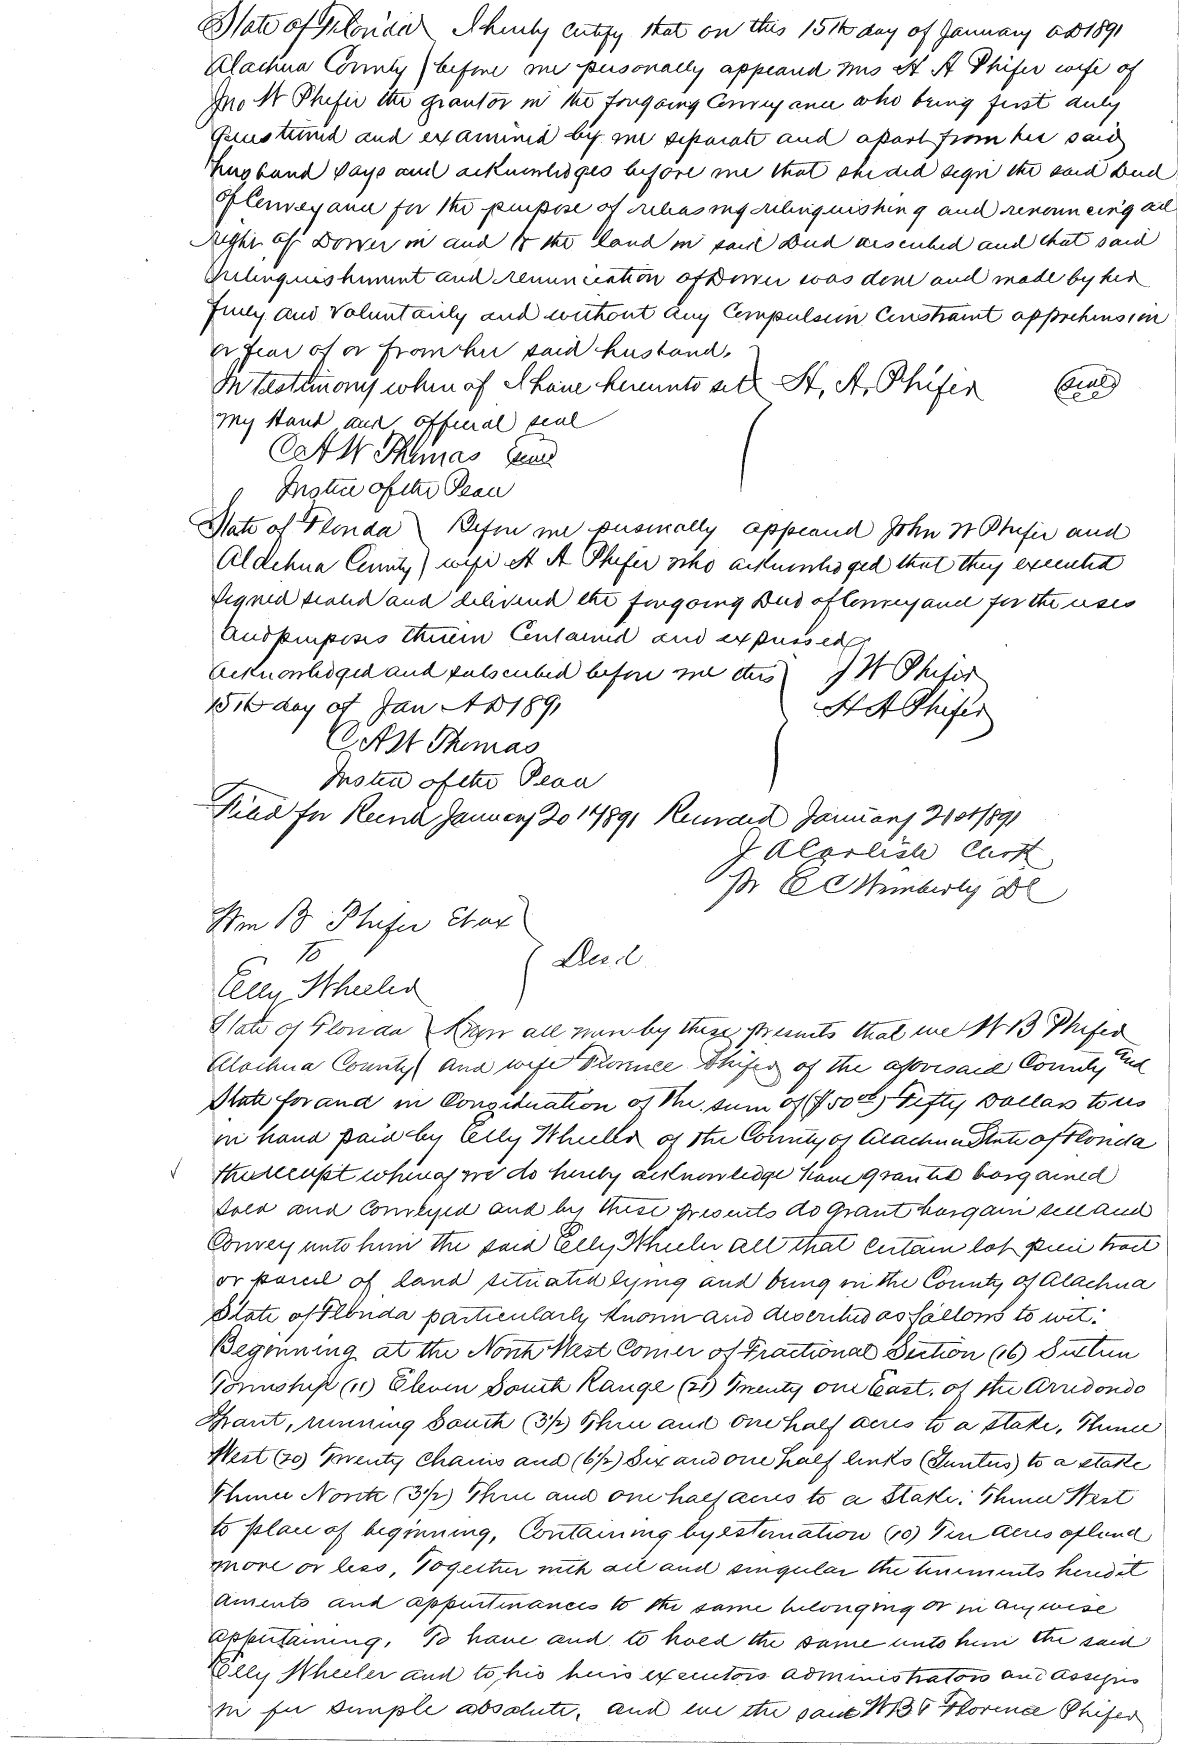 State of Florida } I hereby certify that on this 15th day of January AD 1891
Alachua County } before me personally appeared Mrs H A Phifer wife of
Jno W Phifer the grantor in the forgoing Conveyance who being first duly
questioned and examined by me separate and apart from her said
husband says and acknowledges before me that she did sign the said Deed
of Conveyance for the purpose of releasing relinquishing and renouncing all
right of Dower in and to the land in said Deed described and that said
relinquishment and renunciation of Dower was done and made by her
freely and Voluntarily and without any Compulsion Constraint apprehension
or fear of or from her said husband.
In testimony where of I have hereunto set } H. A. Phifer (seal)
My Hand and official seal
C A W Thomas (seal)
Justice of the Peace
State of Florida } Before me personally appeared John W Phifer and
Alachua County } wife H A Phifer who acknowledged that they executed
signed sealed and delivered the forgoing Deed of Conveyance for the uses
and purposes therein Contained and expressed
Acknowledged and subscribed before me this } J W Phifer
15th day of Jan AD 1891 H A Phifer
C A W Thomas
Justice of the Peace
Filed for Record January 20th 1891 Recorded January 21st 1891
J A Carlisle Clerk
pr E C Wimberly DC
Wm B Phifer Et ux }
To } Deed
Elly Wheeler
State of Florida } Know all men by these presents that we W B Phifer
Alachua County } and wife Florence Phifer of the aforesaid County and
State for and in Consideration of the sum of ($50 00) Fifty Dollars to us
in hand paid by Elly Wheeler of the County of Alachua State of Florida
the receipt whereof we do hereby acknowledge have granted bargained
sold and conveyed and by these presents do grant bargain sell and
Convey unto him the said Elly Wheeler all that certain lot piece tract
or parcel of land situated lying and being in the County of Alachua
State of Florida particularly known and described as follows to wit:
Beginning at the North West Corner of Fractional Section (16) Sixteen
Township (11) Eleven South Range (21) Twenty one East. of the Arredondo
Grant, running South (3½) Three and one half acres to a stake, Thence
West (20) Twenty Chains and (6½) Six and one half links (Gunters) to a stake
Thence North (3½) Three and one half acres to a Stake: Thence West
to place of beginning, Containing by estimation (10) Ten acres of land
more or less, Together with all and singular the tenements heredit
aments and appurtinances to the same belonging or in anywise
appertaining. To have and to hold the same unto him the said
Elly Wheeler and to his heirs executors administrators and assigns
in fee simple absolute. and we the said W B & Florence Phifer